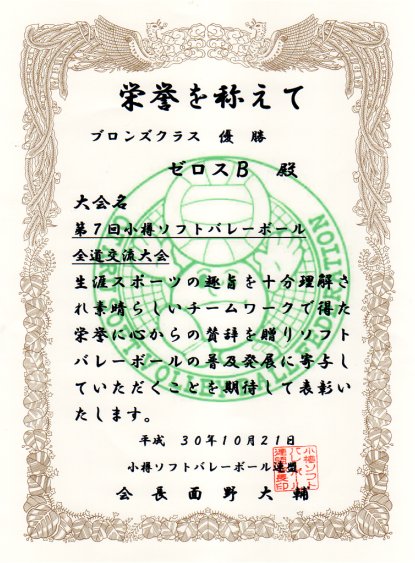 栄誉を称えて
ブロンズクラス 優勝
ゼロスB 殿
大会名
第7回小樽ソフトバレーボール
全道交流大会
生涯スポーツの趣旨を十分理解さ
れ素晴らしいチームワークで得た
栄誉に心からの賛辞を贈りソフト
バレーボールの普及発展に寄与し
ていただくことを期待して表彰い
たします。
平成 30年10月21日
小樽ソフトバレーボール連盟
会長 面野大輔